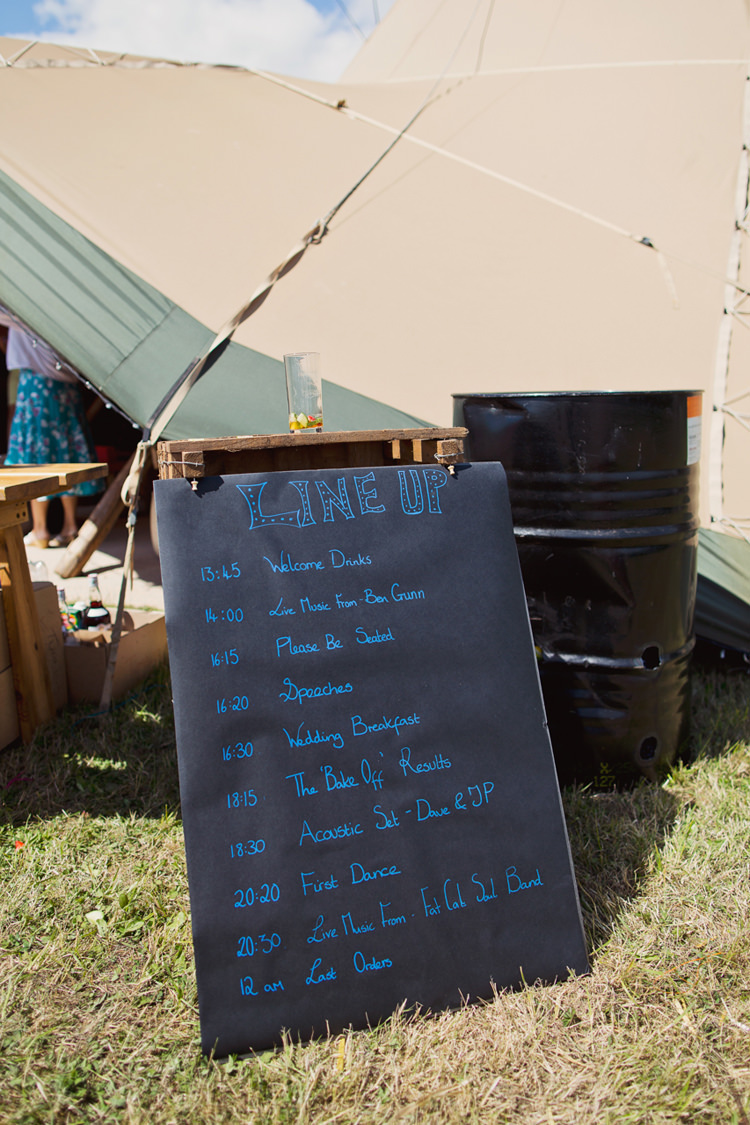 LINE UP
13:45 Welcome Drinks
14:00 Live Music From - Ben Gunn
16:15 Please Be Seated
16:20 Speeches
16:30 Wedding Breakfast
18:15 The 'Bake Off' Results
18:30 Acoustic Set - Dave & JP
20:20 First Dance
20:30 Live Music From - Fat Cat Soul Band
12 am Last Orders